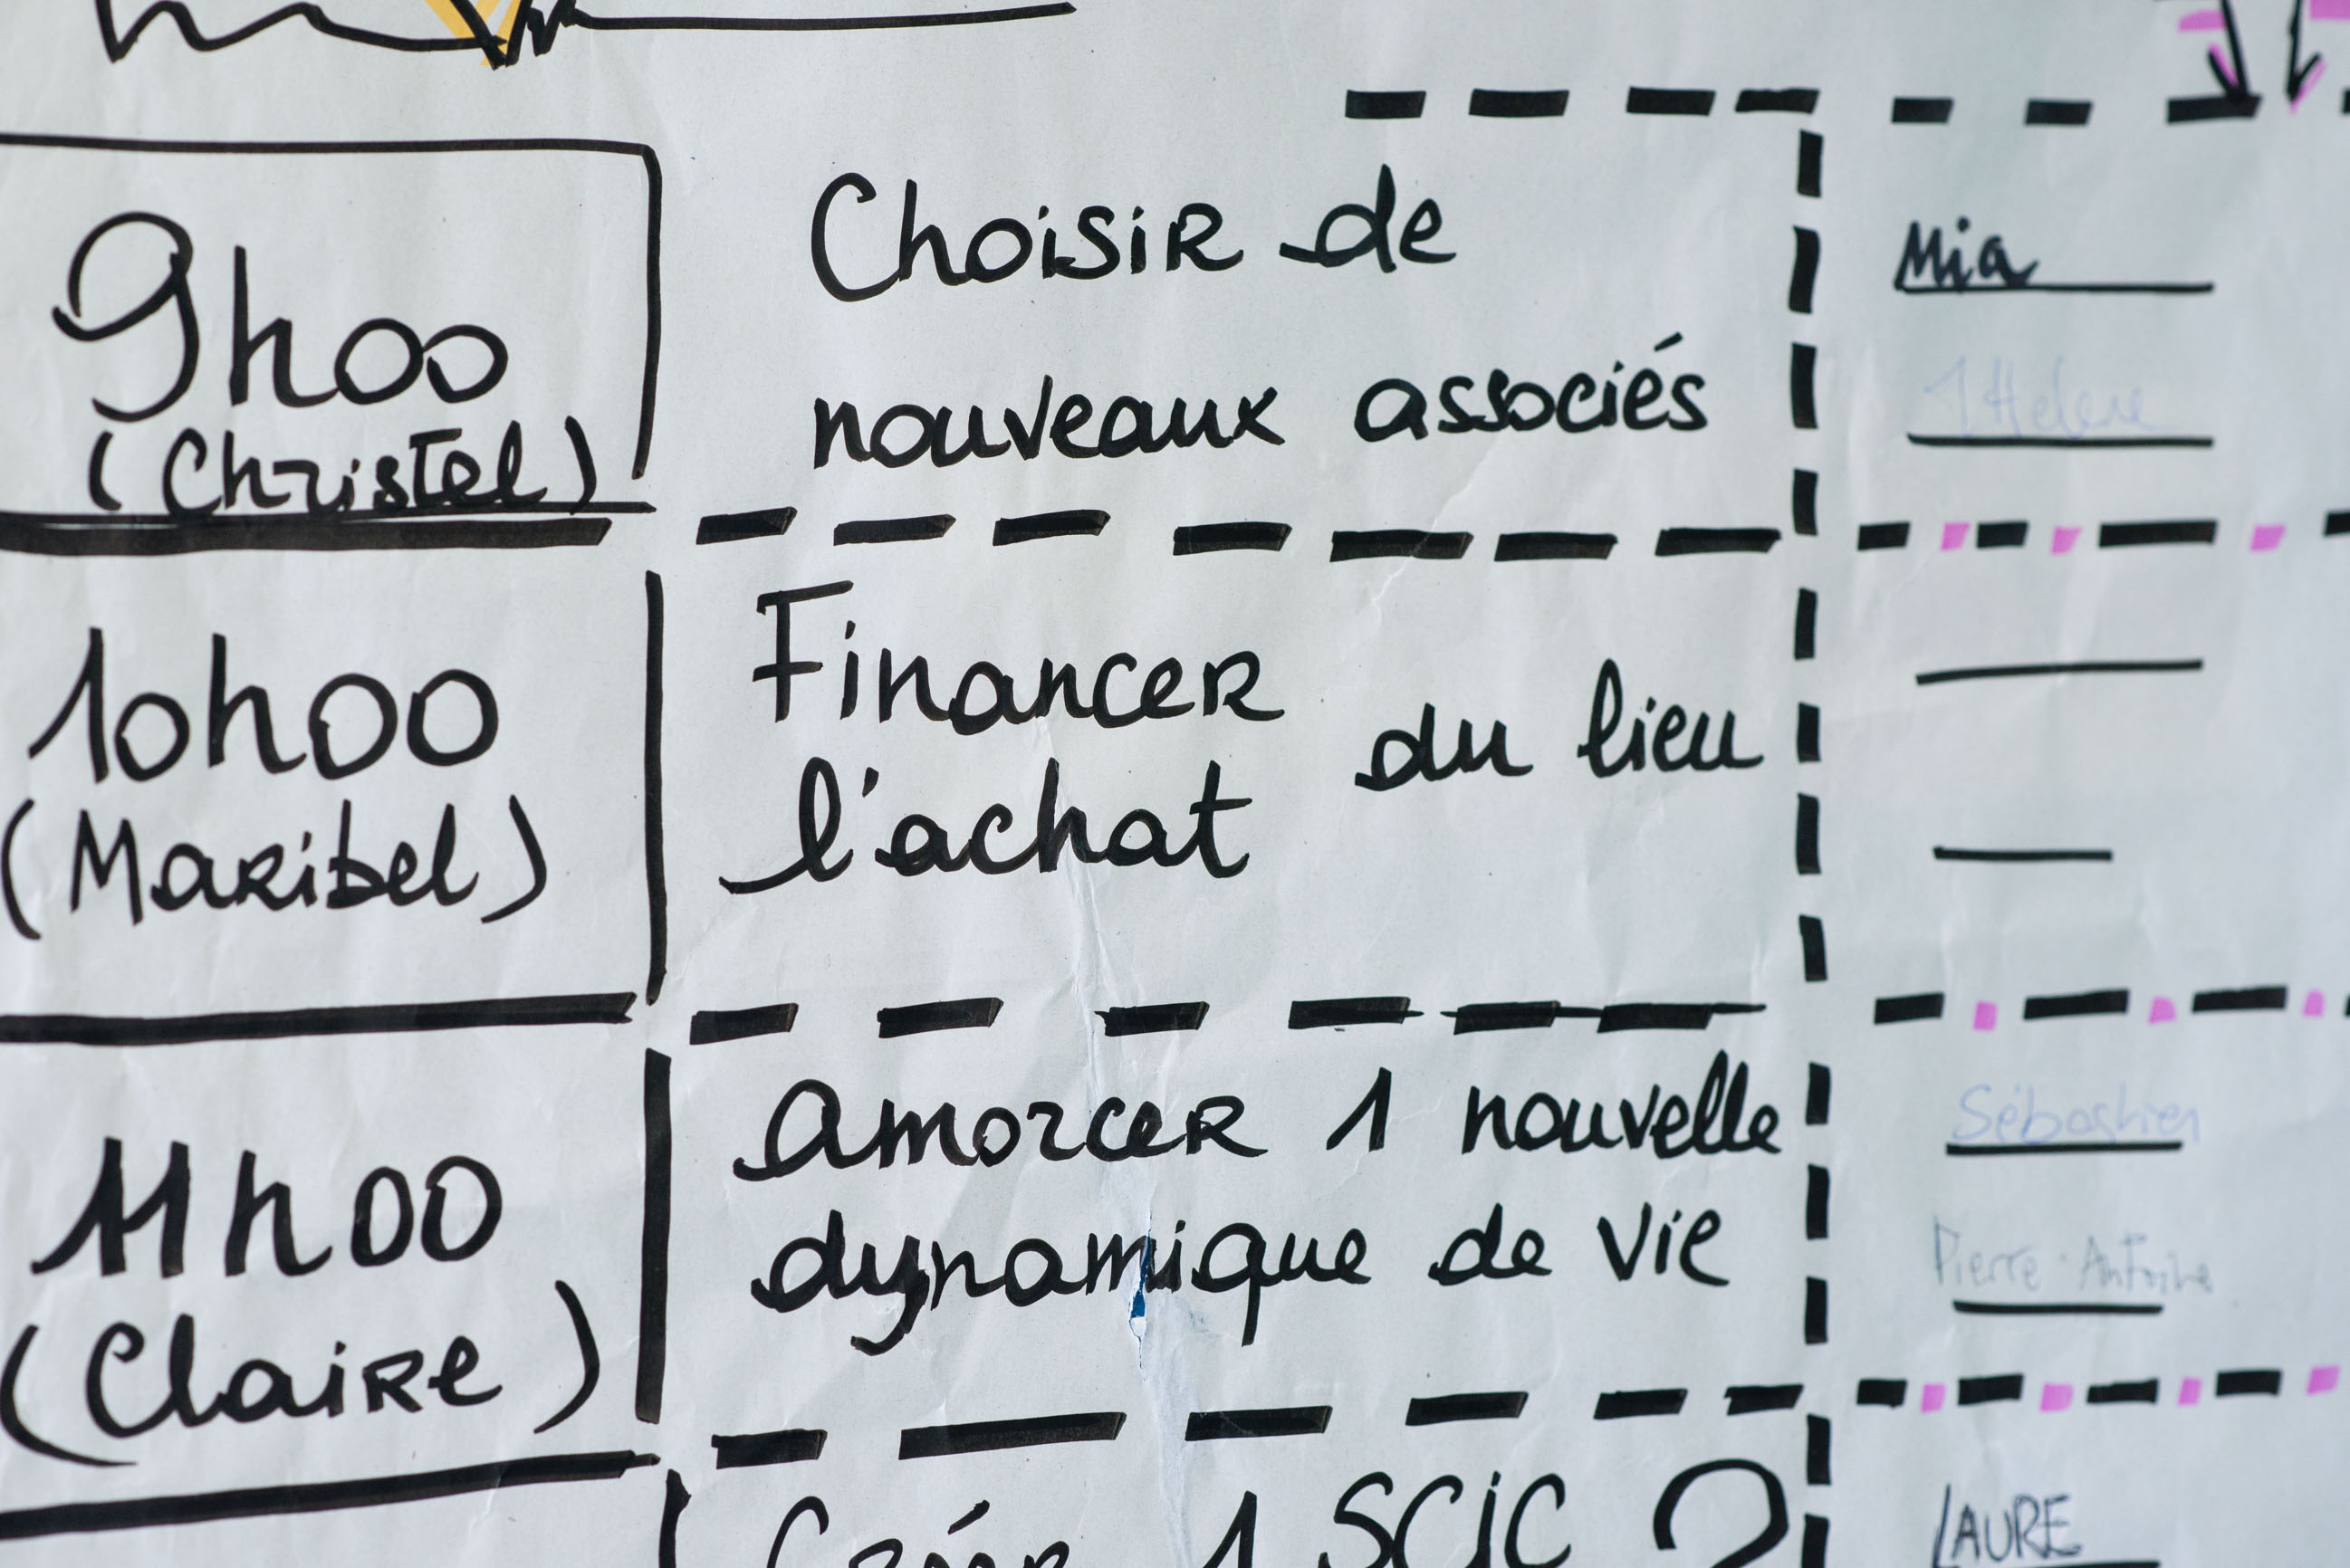 9h00
(Christel)
Choisir de
nouveaux associés
Mia
Helene
10h00
(Maribel)
Financer
l'achat du lieu
11h00
(Claire)
amorcer 1 nouvelle
dynamique de vie
Sébastien
Pierre-Antoine
Créer 1 SCIC ?
LAURE